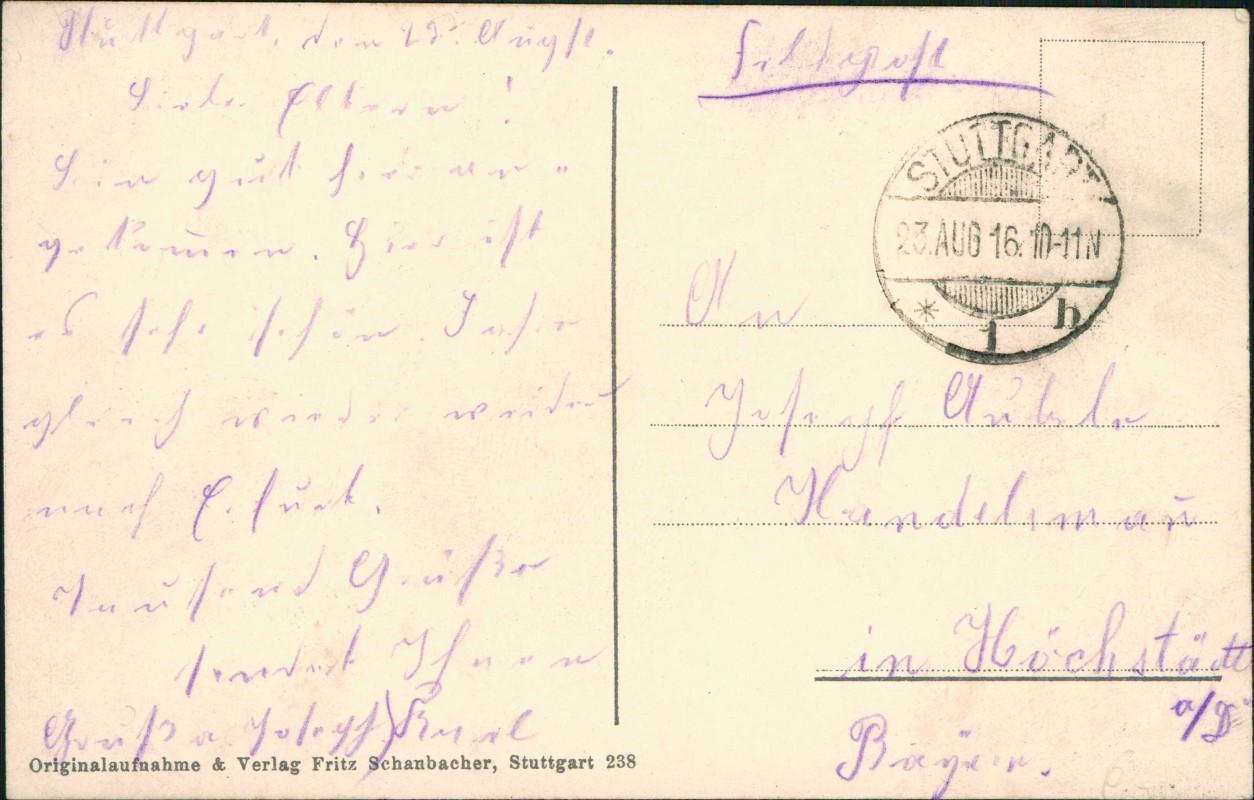 Stuttgart, den 23. Augst.
Liebe Eltern!
Bin gut hier an-
gekommen. Hier ist
es sehr schön.
gleich wieder weiter
nach Erfurt.
Tausend Grüße
sendet Ihnen
Gruß a. Joseph) Karl
Feldpost
STUTTGART
23.AUG 16. 10-11 N
* 1 b
An
Joseph Aubele
Handelsmañ
in Höchstädt
a/D
Bayern.
Originalaufnahme & Verlag Fritz Schanbacher, Stuttgart 238